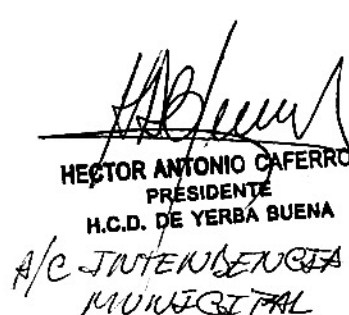 HECTOR ANTONIO CAFERRO
PRESIDENTE
H.C.D. DE YERBA BUENA
A/C INTENDENCIA
MUNICIPAL